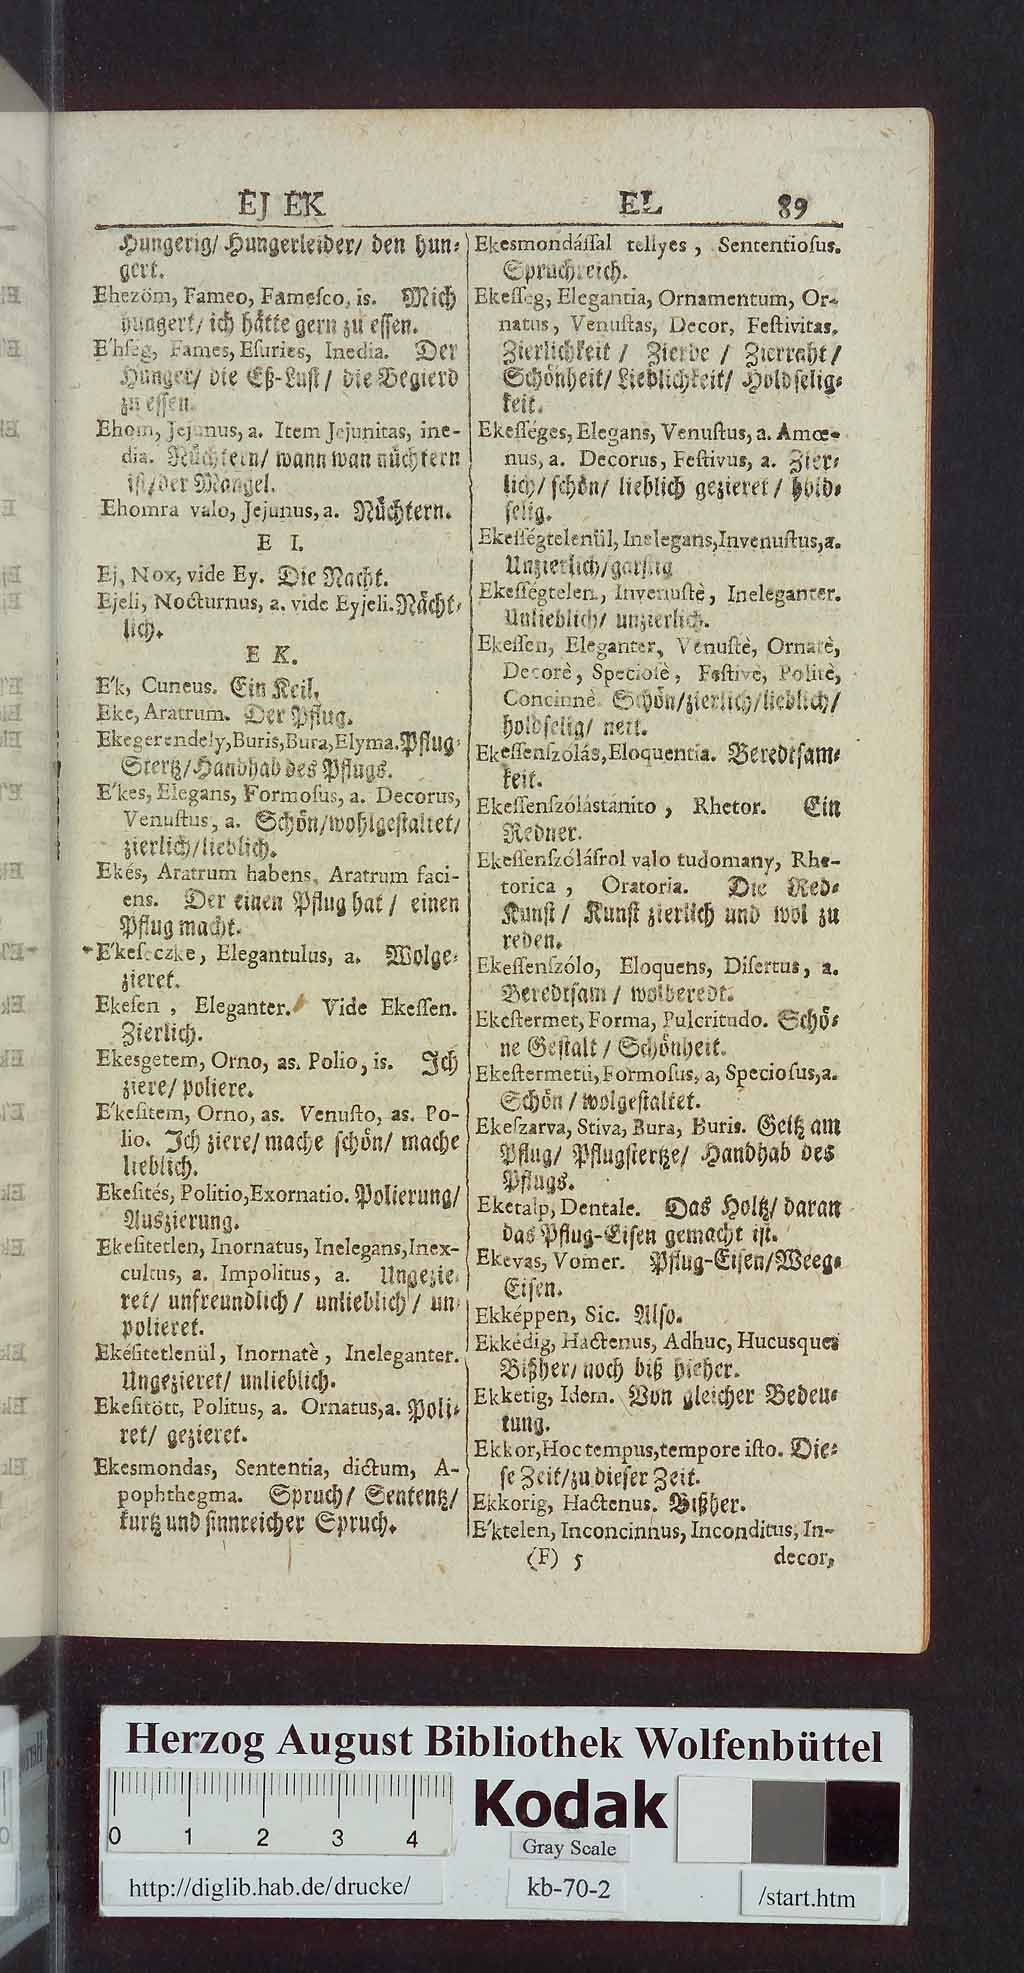 EJ EK
EL 89
Hungerig/ Hungerleider/ den hun⸗
gert.
Ehezöm, Fameo, Fameſco, is. Mich
hungert/ ich hätte gern zu eſſen.
E'hſég, Fames, Eſuries, Inedia. Der
Hunger/ die Eß-Luſt/ die Begierd
zu eſſen.
Ehom, Jejunus, a. Item Jejunitas, ine-
dia. Nüchtern/ wann wan nüchtern
iſt/ der Mangel.
Ehomra valo, Jejunus, a. Nüchtern.
E I.
Ej, Nox, vide Ey. Die Nacht.
Ejeli, Nocturnus, a. vide Eyjeli. Nächt⸗
lich.
E K.
E'k, Cuneus. Ein Keil.
Eke, Aratrum. Der Pflug.
Ekegerendely, Buris, Bura, Elyma. Pflug⸗
Stertz/ Handhab des Pflugs.
E'kes, Elegans, Formoſus, a. Decorus,
Venuſtus, a. Schön/ wohlgeſtaltet/
zierlich/ lieblich.
Ekés, Aratrum habens, Aratrum faci-
ens. Der einen Pflug hat/ einen
Pflug macht.
E'keſeczke, Elegantulus, a. Wolge⸗
zieret.
Ekeſen, Eleganter. Vide Ekeſſen.
Zierlich.
Ekesgetem, Orno, as. Polio, is. Ich
ziere/ poliere.
E'keſitem, Orno, as. Venuſto, as. Po-
lio. Ich ziere/ mache ſchön/ mache
lieblich.
Ekeſités, Politio, Exornatio. Polierung/
Auszierung.
Ekeſitetlen, Inornatus, Inelegans, Inex-
cultus, a. Impolitus, a. Ungezie⸗
ret/ unfreundlich/ unlieblich/ un⸗
polieret.
Ekéſitetlenül, Inornatè, Ineleganter.
Ungezieret/ unlieblich.
Ekeſitött, Politus, a. Ornatus, a. Poli⸗
ret/ gezieret.
Ekesmondas, Sententia, dictum, A-
pophthegma. Spruch/ Sententz/
kurtz und ſinnreicher Spruch.
Ekesmondáſſal tellyes, Sententioſus.
Spruchreich.
Ekeſſég, Elegantia, Ornamentum, Or-
natus, Venuſtas, Decor, Feſtivitas.
Zierlichkeit/ Zierde/ Zierraht/
Schönheit/ Lieblichkeit/ Holdſelig⸗
keit.
Ekeſſéges, Elegans, Venuſtus, a. Amœ-
nus, a. Decorus, Feſtivus, a. Zier⸗
lich/ ſchön/ lieblich gezieret/ hold⸗
ſelig.
Ekeſſégtelenül, Inelegans, Invenuſtus, a.
Unzierlich/ garſtig
Ekeſſégtelen, Invenuſtè, Ineleganter.
Unlieblich/ unzierlich.
Ekeſſen, Eleganter, Venuſtè, Ornatè,
Decorè, Specioſè, Feſtivè, Politè,
Concinnè. Schön/ zierlich/ lieblich/
holdſelig/ nett.
Ekeſſenſzólás, Eloquentia. Beredtſam⸗
keit.
Ekeſſenſzólástánito, Rhetor. Ein
Redner.
Ekeſſenſzóláſrol valo tudomany, Rhe-
torica, Oratoria. Die Red⸗
Kunſt/ Kunſt zierlich und wol zu
reden.
Ekeſſenſzólo, Eloquens, Diſertus, a.
Beredtſam/ wolberedt.
Ekeſtermet, Forma, Pulcritudo. Schö⸗
ne Geſtalt/ Schönheit.
Ekeſtermetü, Formoſus, a, Specioſus, a.
Schön/ wolgeſtaltet.
Ekeſzarva, Stiva, Bura, Buris. Geitz am
Pflug/ Pflugſtertze/ Handhab des
Pflugs.
Eketalp, Dentale. Das Holtz/ daran
das Pflug-Eiſen gemacht iſt.
Ekevas, Vomer. Pflug-Eiſen/ Weeg⸗
Eiſen.
Ekképpen, Sic. Alſo.
Ekkédig, Hactenus, Adhuc, Hucusque
Bißher/ noch biß hieher.
Ekketig, Idem. Von gleicher Bedeu⸗
tung.
Ekkor, Hoc tempus, tempore iſto. Die⸗
ſe Zeit/ zu dieſer Zeit.
Ekkorig, Hactenus. Bißher.
E'ktelen, Inconcinnus, Inconditus, In-
(F) 5 decor,
Herzog August Bibliothek Wolfenbüttel
0 1 2 3 4
Kodak
Gray Scale
http://diglib.hab.de/drucke/
kb-70-2
/start.htm